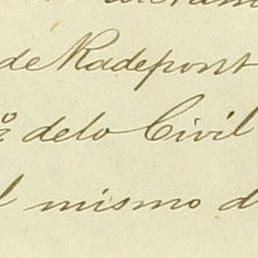 de Radepont
º delo Civil
l mismo d